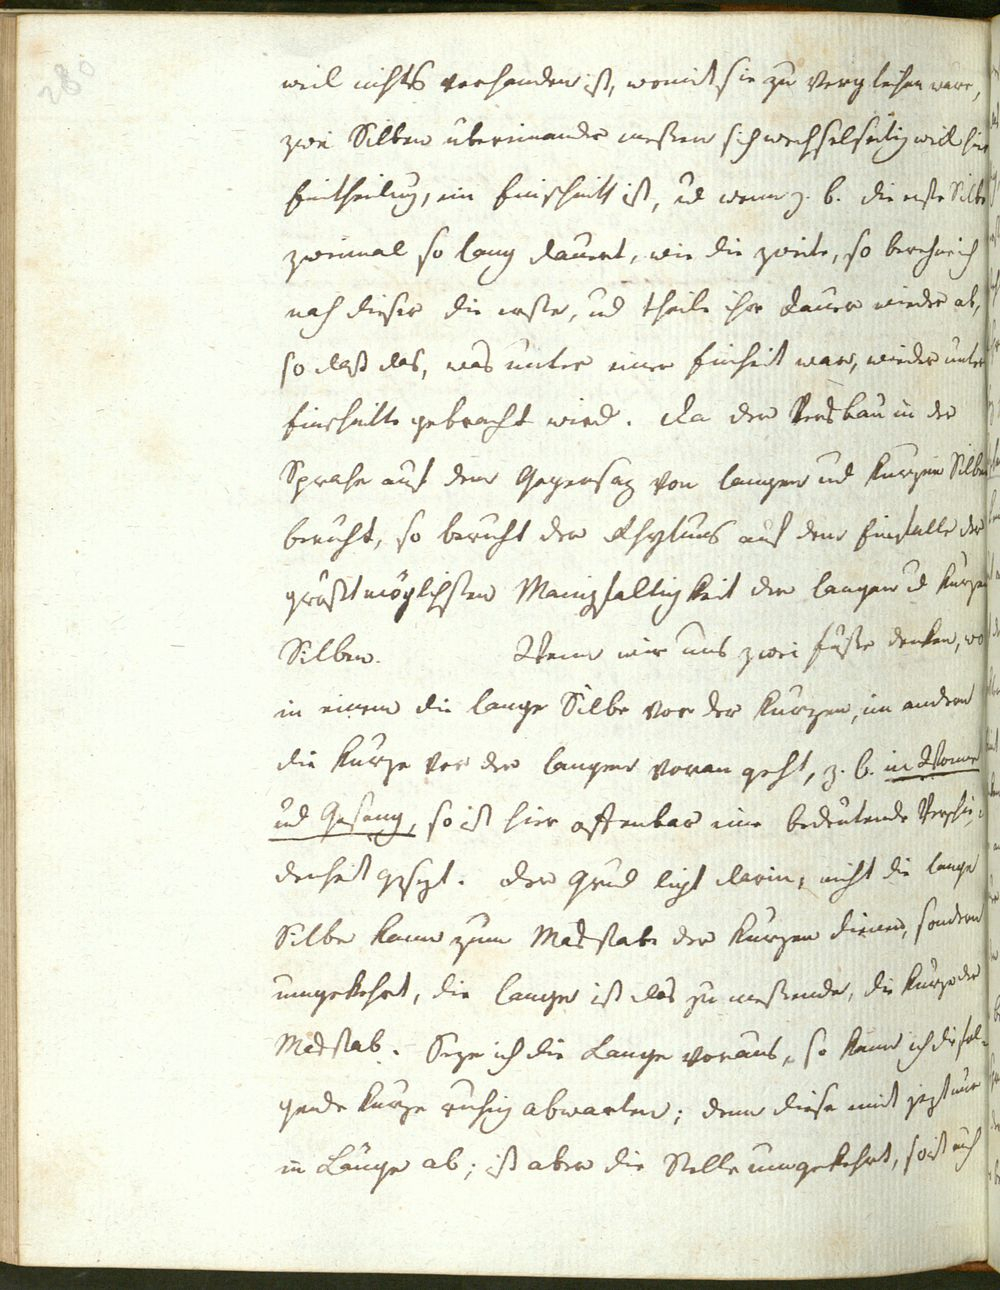 280
weil nichts vorhanden ist, womit sie zu vergleichen wäre,
zwei Silben übereinander messen sich wechselseitig weil hier
Eintheilung, ein Einschnitt ist, ud wenn z. b. die erste Silbe
zweimal so lang dauert, wie die zweite, so berechne ich
nach dieser die erste, ud theile ihre Dauer wieder ab,
so daß das, was unter einer Einheit war, wieder unter
Einschnitte gebracht wird. Da der Versbau in der
Sprache auf dem Gegensaz von langen und kurzen Silben
beruht, so beruht der Rhytmus auf dem Einfalle der
größtmöglichsten Manigfaltigkeit der langen ud kurzen
Silben. Wenn wir uns zwei Füße denken, wo
in einem die lange Silbe vor der kurzen, im andern
die kurze vor der langen voran geht, z. b. in Wonne
und Gesang, so ist hier offenbar eine bedeutende Verschie
denheit gesezt. Der Grund ligt darin, nicht die lange
Silbe kann zum Masstabe der kurzen dienen, sondern
umgekehrt, die lange ist das zu messende, die kurze der
Masstab. Seze ich die Länge voraus, so kann ich die fol-
gende kurze ruhig abwarten; denn diese mist jezt nur
die Länge ab; ist aber die Stelle umgekehrt, so ist auch